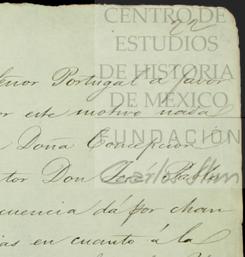 CENTRO DE
ESTUDIOS
DE HISTORIA
DE MÉXICO
FUNDACIÓN
Carlos Slim
22
Señor Portugal a favor
or este motivo nada
a Doña Concepcion
tor Don José Pablo
cuencia dá por chan
ias en cuanto á la